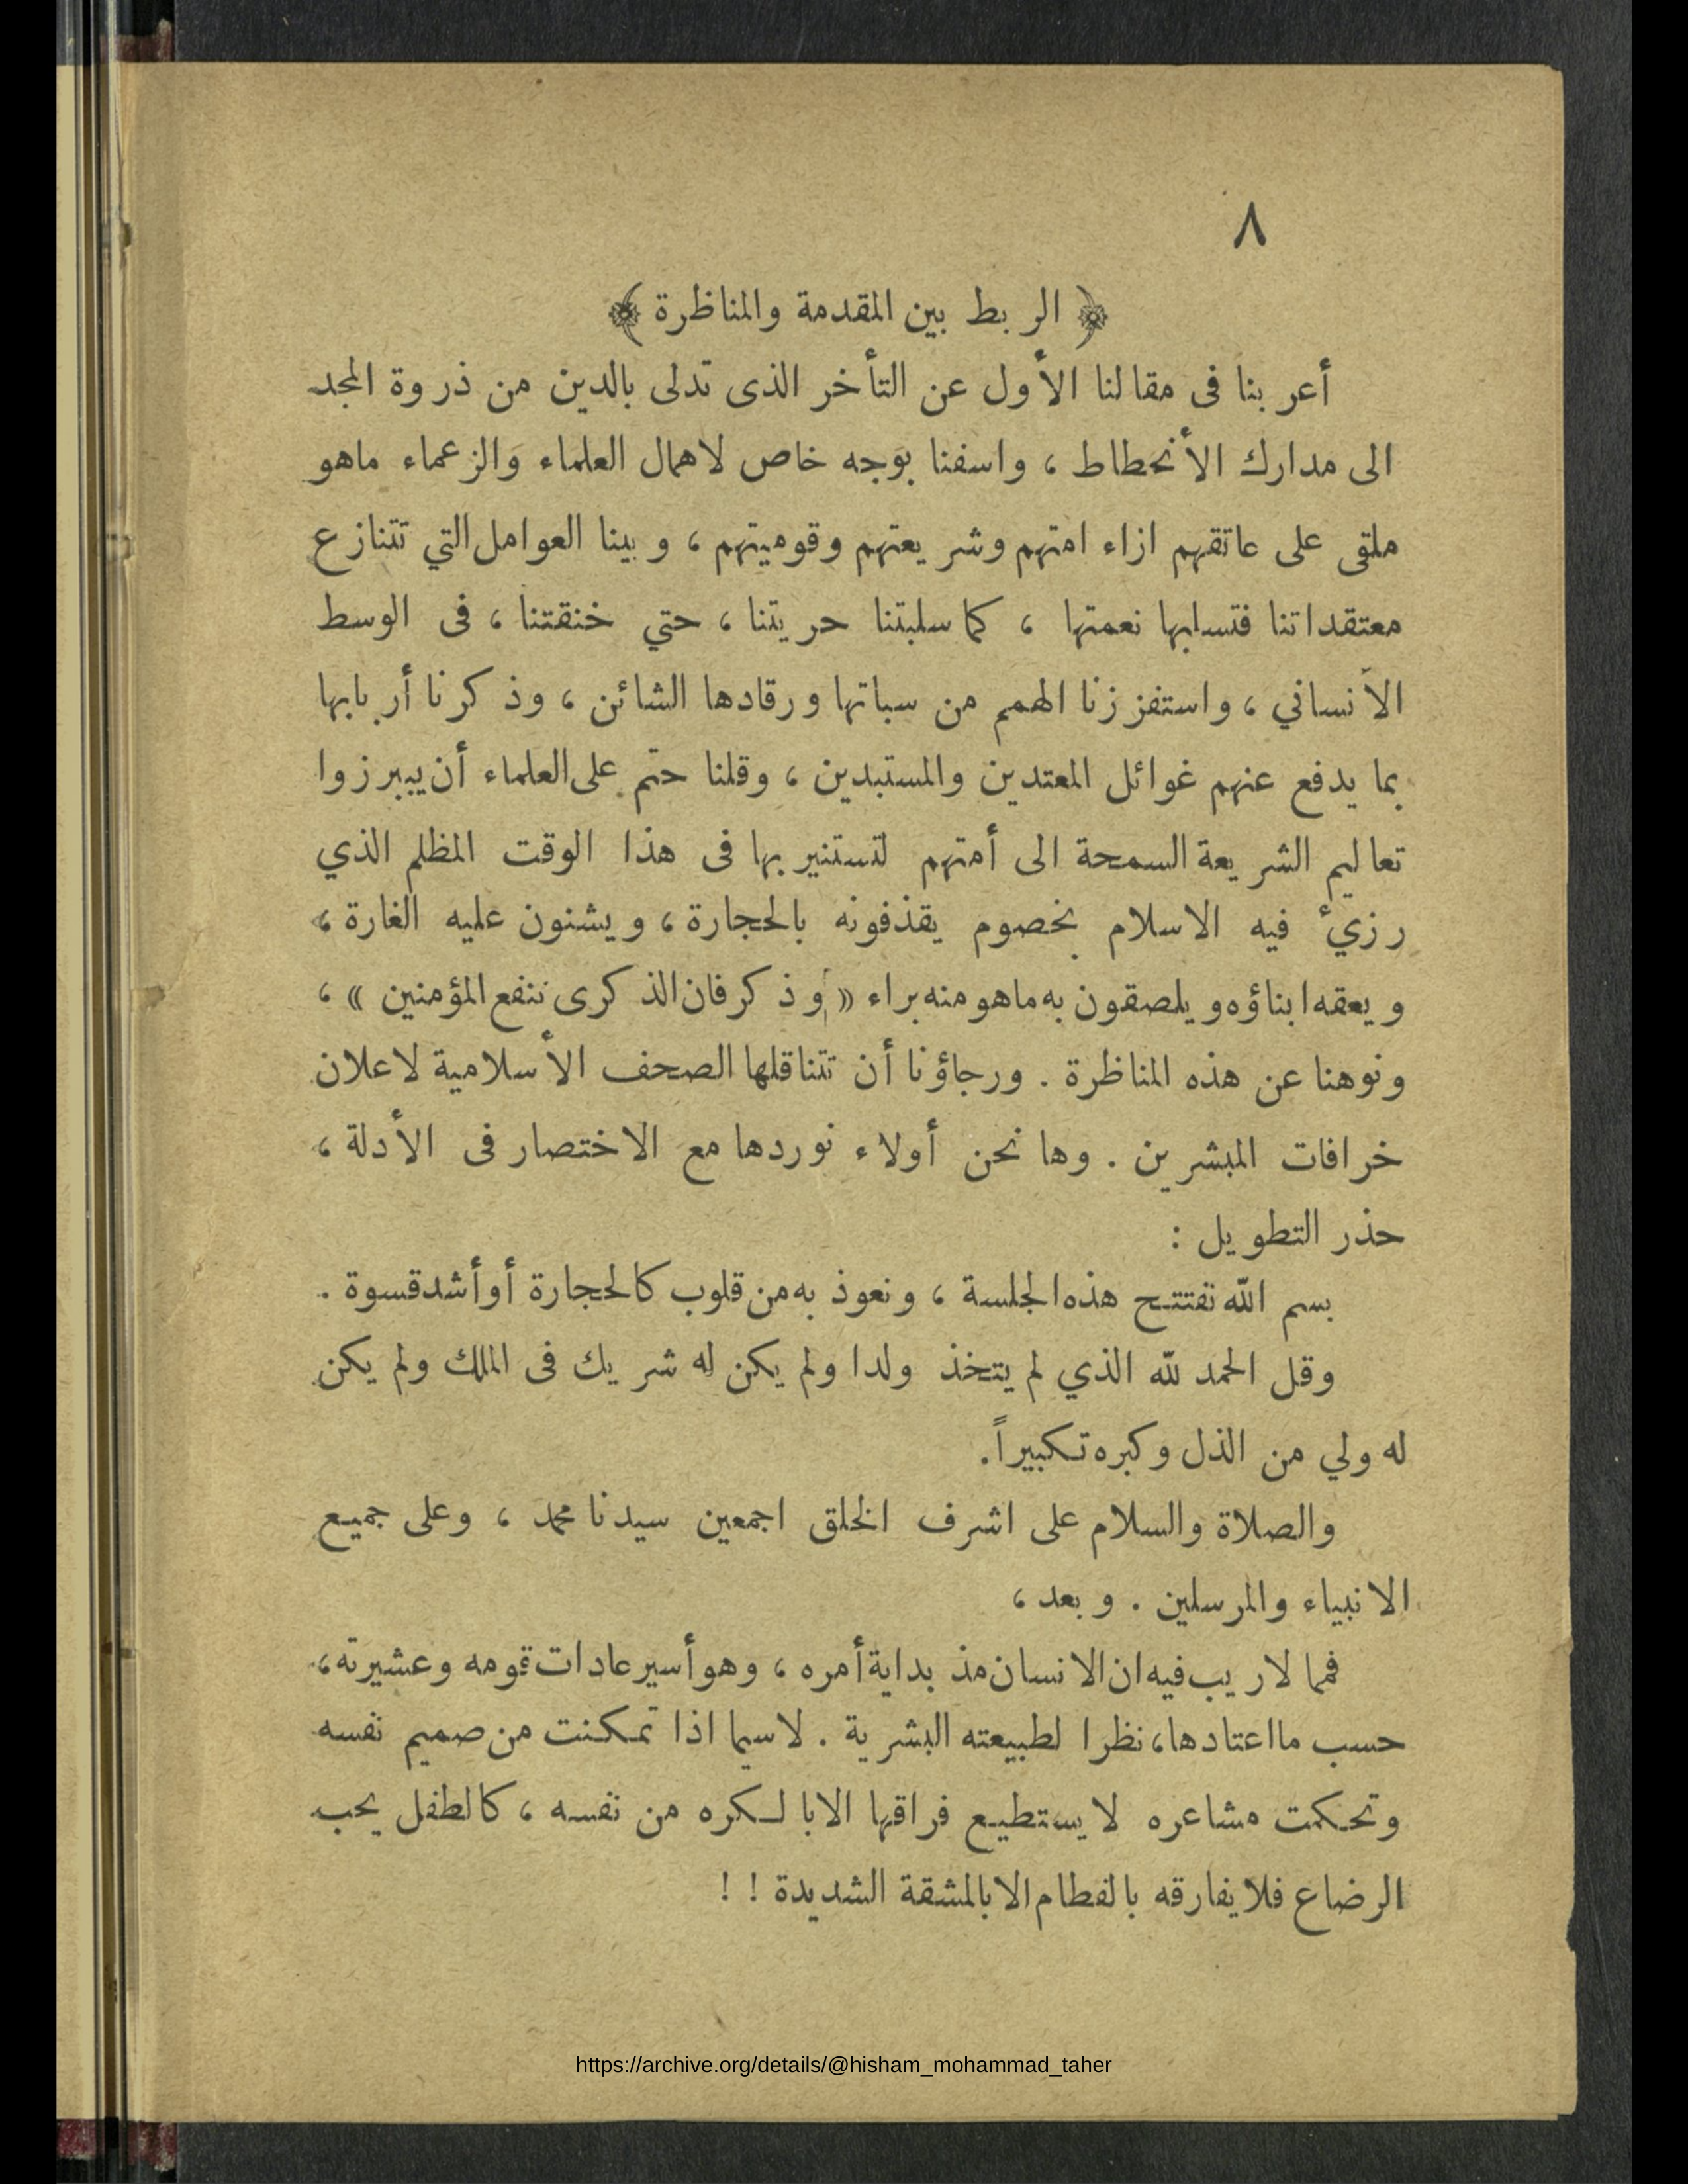 ٨
﴿ الربط بين المقدمة والمناظرة ﴾
أعربنا فى مقالنا الأول عن التأخر الذى تدلى بالدين من ذروة المجد
الى مدارك الأنحطاط ، واسفنا بوجه خاص لاهمال العلماء والزعماء ماهو
ملقى على عاتقهم ازاء امتهم وشريعتهم وقوميتهم ، وبينا العوامل التي تتنازع
معتقداتنا فتسلبها نعمتها ، كما سلبتنا حريتنا ، حتي خنقتنا ، فى الوسط
الأنساني ، واستفززنا الهمم من سباتها ورقادها الشائن ، وذكرنا أربابها
بما يدفع عنهم غوائل المعتدين والمستبدين ، وقلنا حتم على العلماء أن يببرزوا
تعاليم الشريعة السمحة الى أمتهم لتستنير بها فى هذا الوقت المظلم الذي
رزئ فيه الاسلام بخصوم يقذفونه بالحجارة ، ويشنون عليه الغارة ،
ويعقه ابناؤه ويلصقون به ماهو منه براء « وذكر فان الذكرى تنفع المؤمنين » ،
ونوهنا عن هذه المناظرة . ورجاؤنا أن تتناقلها الصحف الأسلامية لاعلان
خرافات المبشرين . وها نحن أولاء نوردها مع الاختصار فى الأدلة ،
حذر التطويل :
بسم الله نفتتح هذه الجلسة ، ونعوذ به من قلوب كالحجارة أو أشد قسوة .
وقل الحمد لله الذي لم يتخذ ولدا ولم يكن له شريك فى الملك ولم يكن
له ولي من الذل وكبره تكبيراً.
والصلاة والسلام على اشرف الخلق اجمعين سيدنا محمد ، وعلى جميع
الانبياء والمرسلين . وبعد ،
فمما لاريب فيه ان الانسان مذ بداية أمره ، وهو أسير عادات قومه وعشيرته ،
حسب مااعتادها ، نظرا لطبيعته البشرية . لاسيما اذا تمكنت من صميم نفسه
وتحكمت مشاعره لايستطيع فراقها الابالكره من نفسه ، كالطفل يحب
الرضاع فلايفارقه بالفطام الابالمشقة الشديدة ! !
https://archive.org/details/@hisham_mohammad_taher